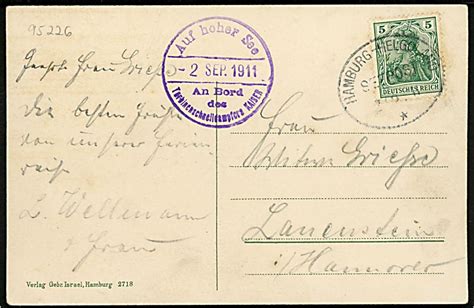 95226
Auf hoher See
- 2 SEP. 1911
An Bord
des
Turbinenschnelldampfers KAISER
5 5
DEUTSCHES REICH
HAMBURG-HELGOLAND
SEEPOST
Geehrte Frau Griesse
Die besten Grüße
von unserer Ferien
reise
L. Wellmann
u Frau
Frau
Griesse
Lauenstein
i/Hannover
Verlag Gebr. Israel, Hamburg 2718